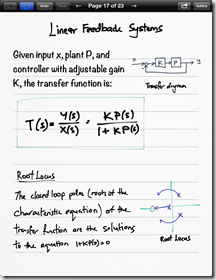 Page 17 of 23
Linear Feedback Systems
Given input x, plant P, and
controller with adjustable gain
K, the transfer function is:
x K P y
Transfer diagram
T(s) = Y(s)/X(s) = KP(s)/1+KP(s)
Root Locus
The closed loop poles (roots of the
characteristic equation) of the
transfer function are the solutions
to the equation 1+KP(s)=0
Root Locus